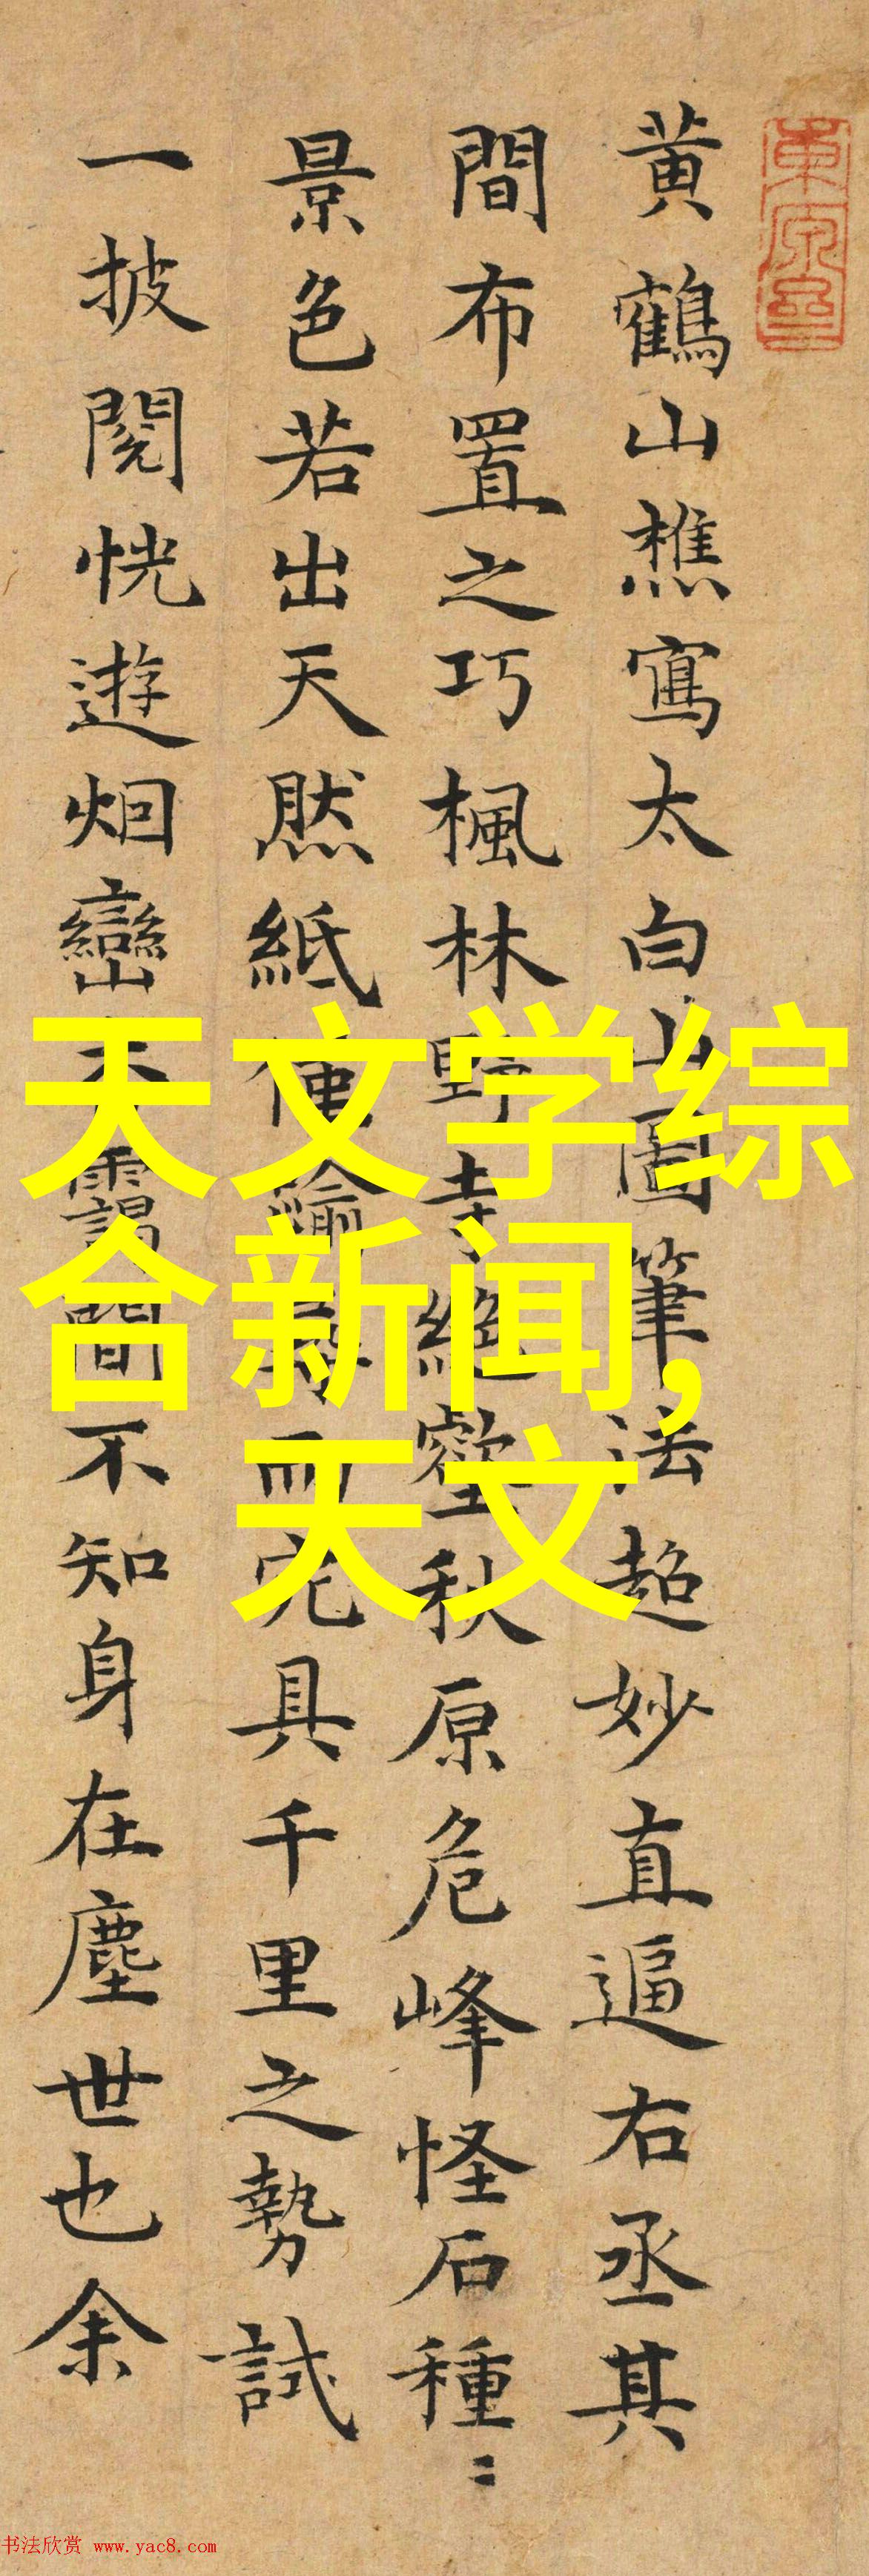 黄鶴山樵寫太白山圖筆法超妙直逼右丞其
間布置之巧楓林野寺絕壑秋原危峰怪石種〻
景色若出天然紙僅踰尋而完具千里之勢試
一披閱恍遊烟巒杳靄間不知身在塵世也余
天文学综
合新闻,
天文
书法欣赏 www.yac8.com